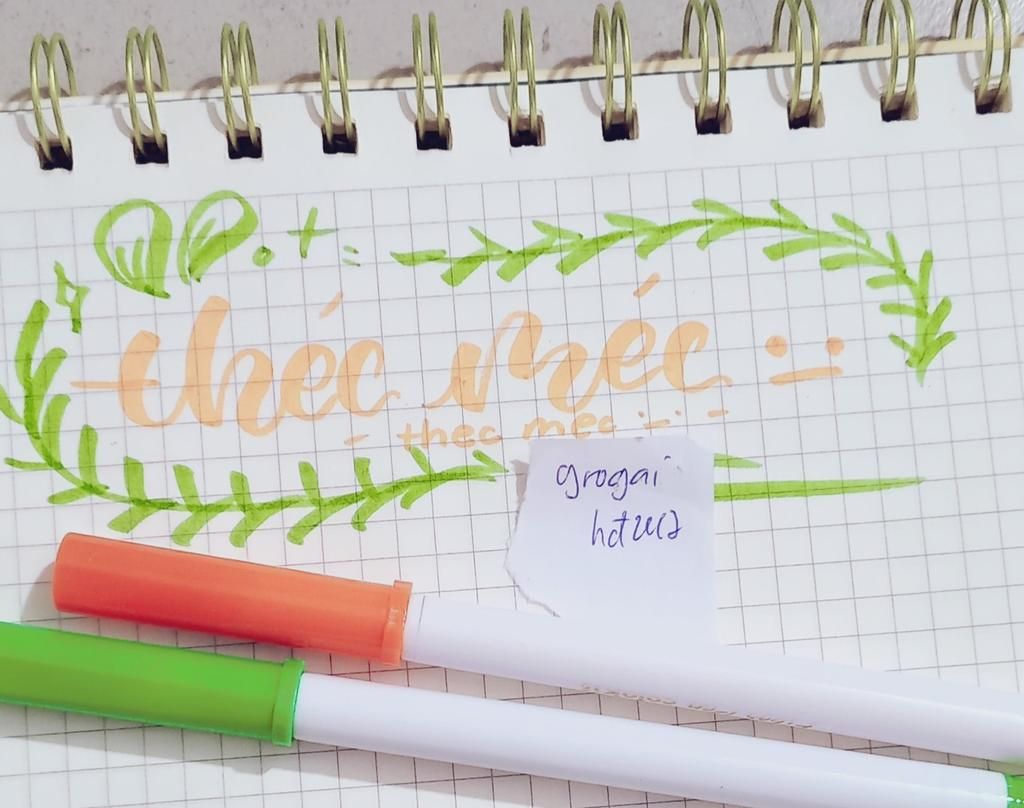 théc méc
- thec mec -
grogai